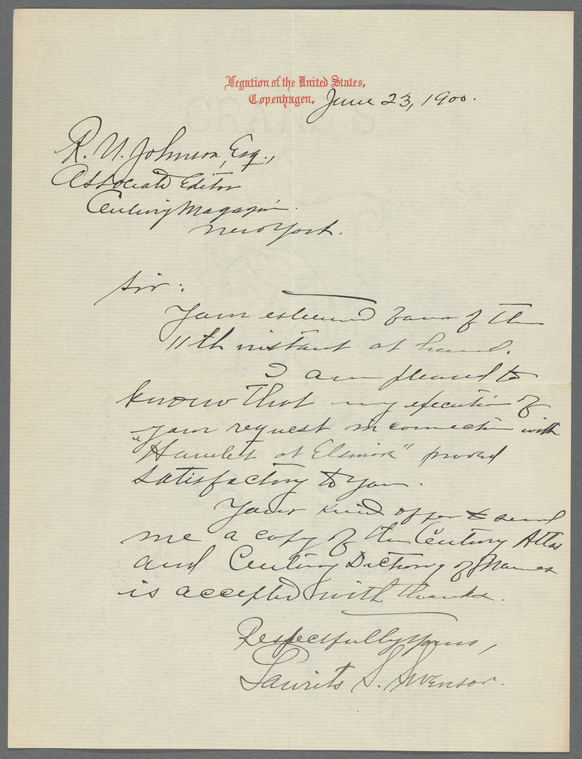 Legation of the United States,
Copenhagen, June 23, 1900.
R. U. Johnson, Esq.,
Associate Editor
Century Magazine.
New York.
Sir:
Your esteemed favor of the
11th instant at hand.
I am pleased to
know that my execution of
your request in connection with
"Hamlet at Elsinore" proved
satisfactory to you.
Your kind offer to send
me a copy of the Century Atlas
and Century Dictionary of Names
is accepted with thanks.
Respectfully yours,
Laurits S. Swenson.